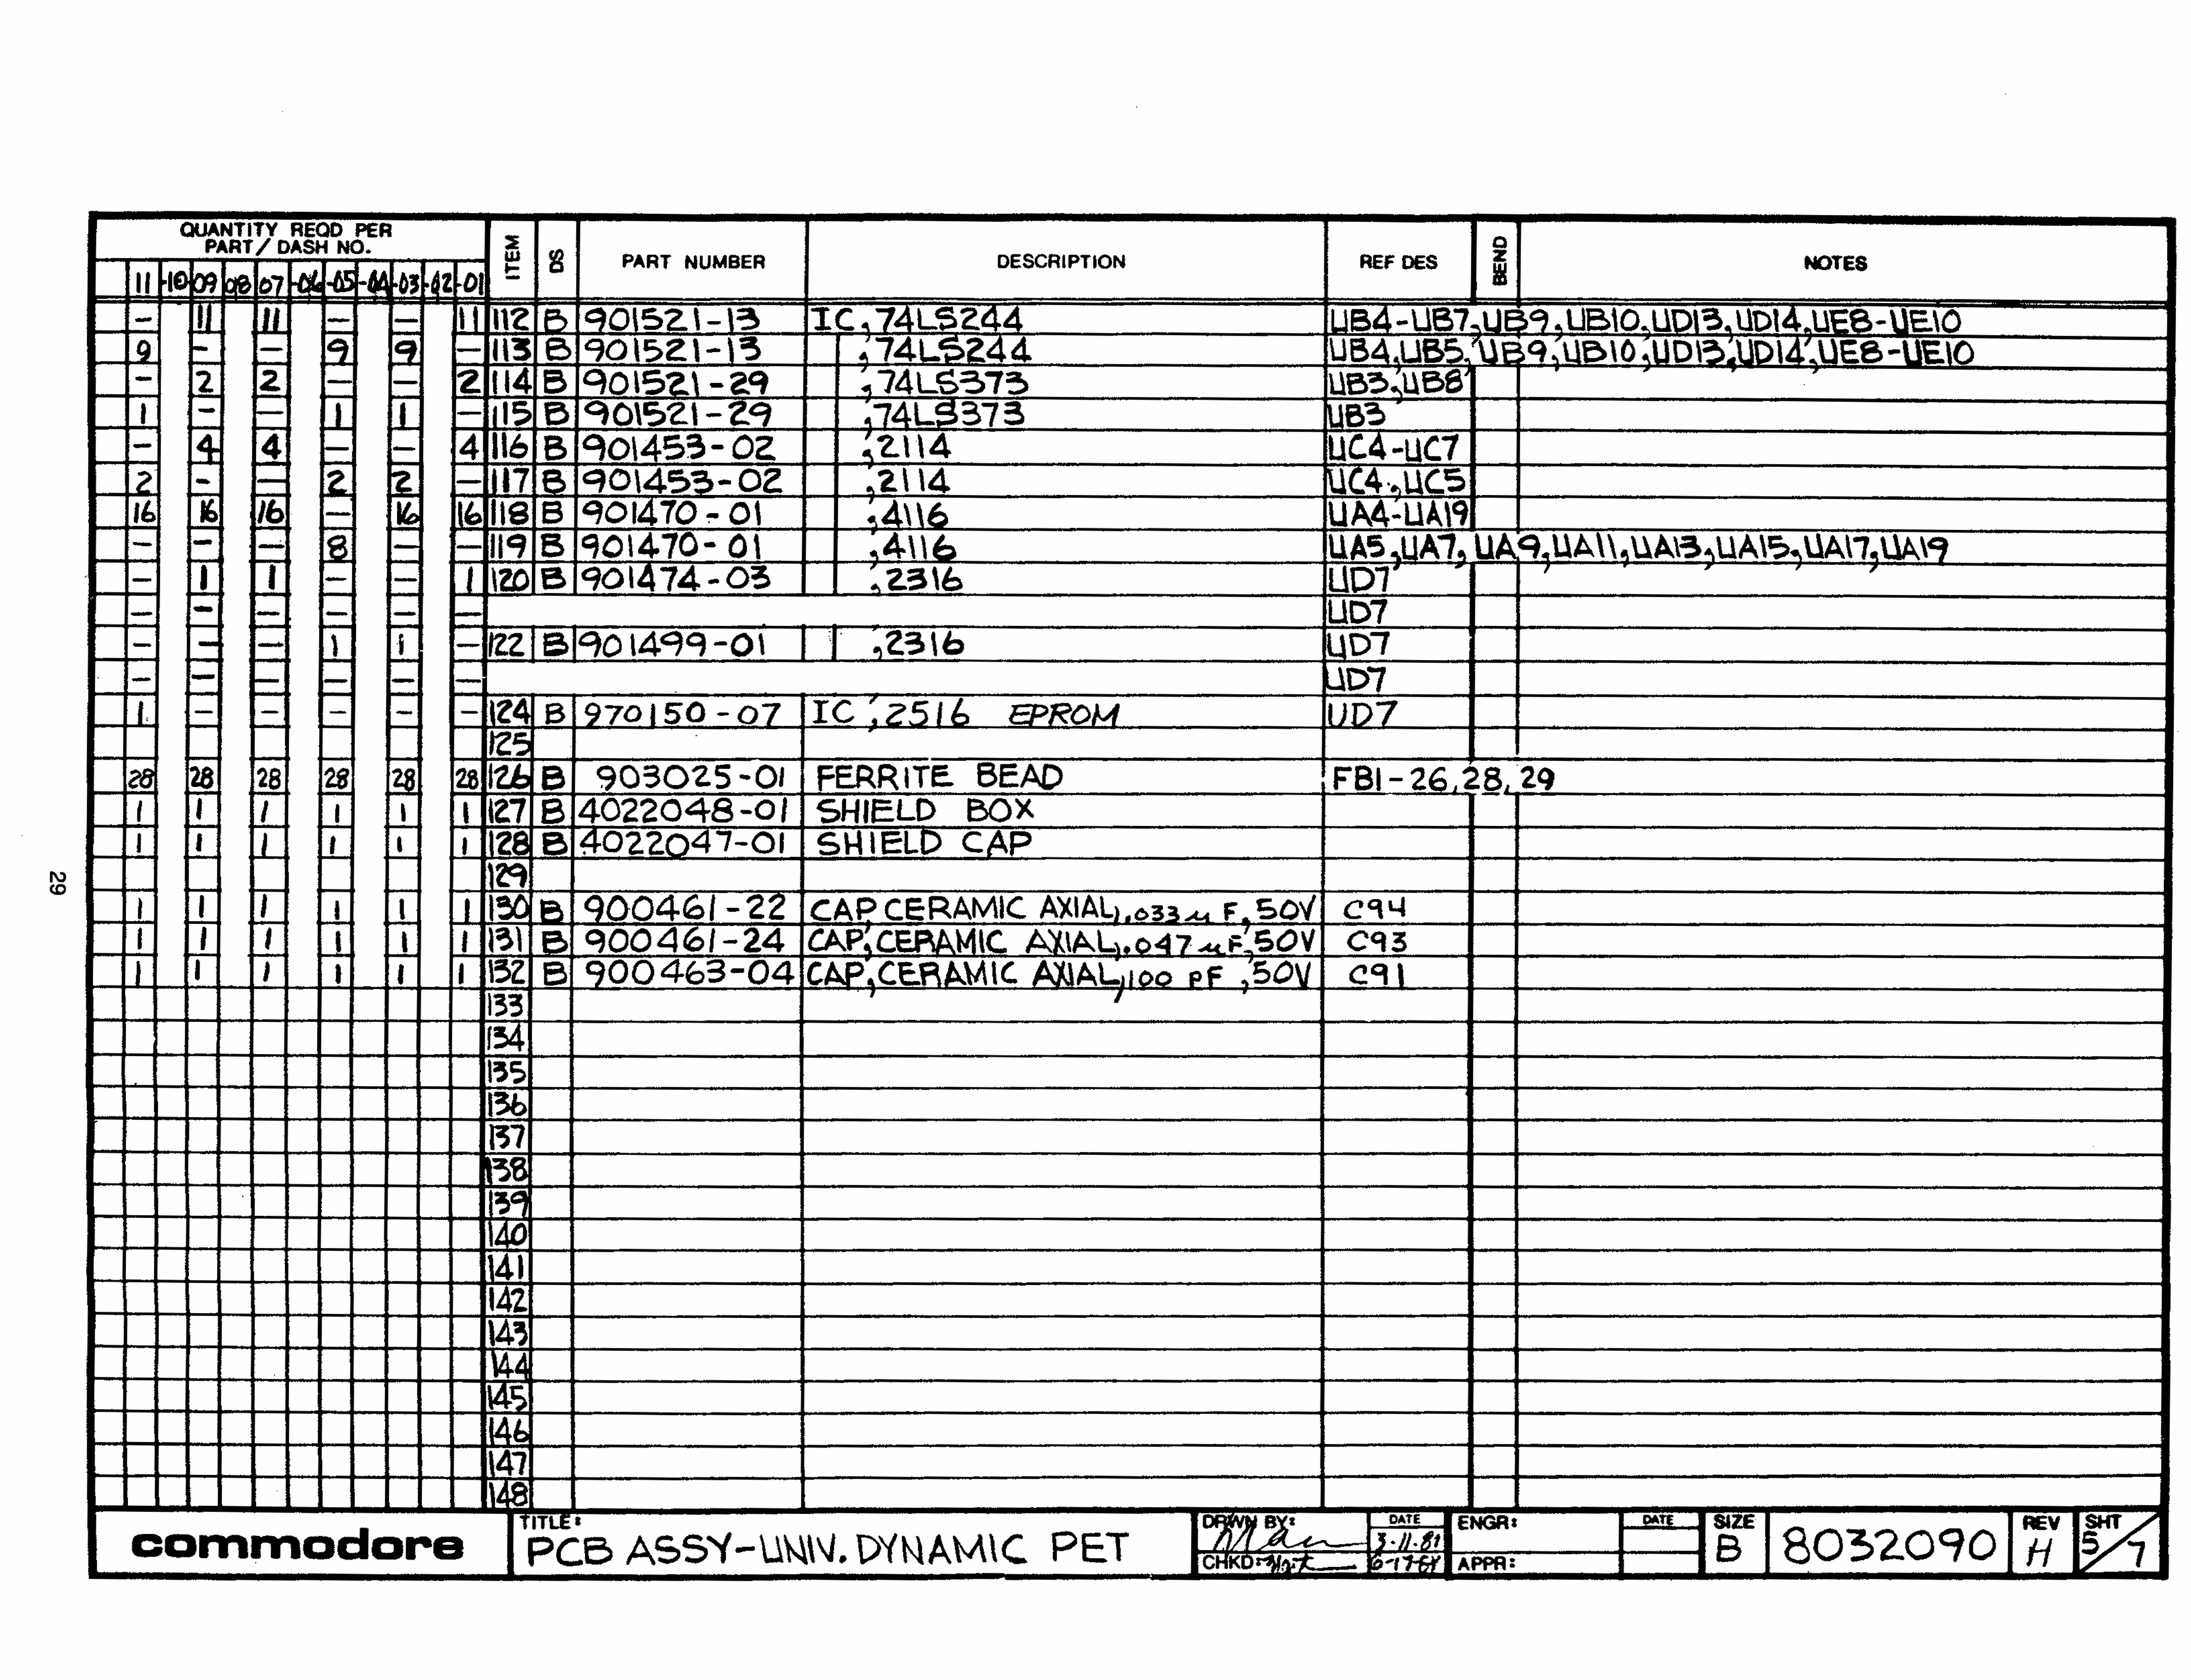 QUANTITY REQD PER
PART / DASH NO.
11 -10 09 08 07 -06 -05 -04 -03 -02 -01 ITEM DS PART NUMBER DESCRIPTION REF DES BEND NOTES
— 11 11 — — 11 112 B 901521-13 IC,74LS244 UB4-UB7,UB9,UB10,UD13,UD14,UE8-UE10
9 - — 9 9 — 113 B 901521-13 ,74LS244 UB4,UB5,UB9,UB10,UD13,UD14,UE8-UE10
- 2 2 — — 2 114 B 901521-29 ,74LS373 UB3,UB8
1 - — 1 1 — 115 B 901521-29 ,74LS373 UB3
- 4 4 — — 4 116 B 901453-02 ,2114 UC4-UC7
2 - — 2 2 — 117 B 901453-02 ,2114 UC4,UC5
16 16 16 — 16 16 118 B 901470-01 ,4116 UA4-UA19
— — — 8 — — 119 B 901470-01 ,4116 UA5,UA7,UA9,UA11,UA13,UA15,UA17,UA19
— 1 1 — — 1 120 B 901474-03 ,2316 UD7
— — — — — — UD7
— — — 1 1 — 122 B 901499-01 ,2316 UD7
— — — — — — UD7
1 — — — — — 124 B 970150-07 IC,2516 EPROM UD7
125
28 28 28 28 28 28 126 B 903025-01 FERRITE BEAD FB1-26,28,29
1 1 1 1 1 1 127 B 4022048-01 SHIELD BOX
1 1 1 1 1 1 128 B 4022047-01 SHIELD CAP
129
1 1 1 1 1 1 130 B 900461-22 CAP,CERAMIC AXIAL,.033 µF,50V C94
1 1 1 1 1 1 131 B 900461-24 CAP,CERAMIC AXIAL,.047 µF,50V C93
1 1 1 1 1 1 132 B 900463-04 CAP,CERAMIC AXIAL,100 PF,50V C91
133
134
135
136
137
138
139
140
141
142
143
144
145
146
147
148
29
commodore
TITLE:
PCB ASSY-UNIV. DYNAMIC PET
DRWN BY: DATE
3-11-81
CHKD:
ENGR: DATE
APPR:
SIZE
B
8032090
REV
H
SHT
5/7